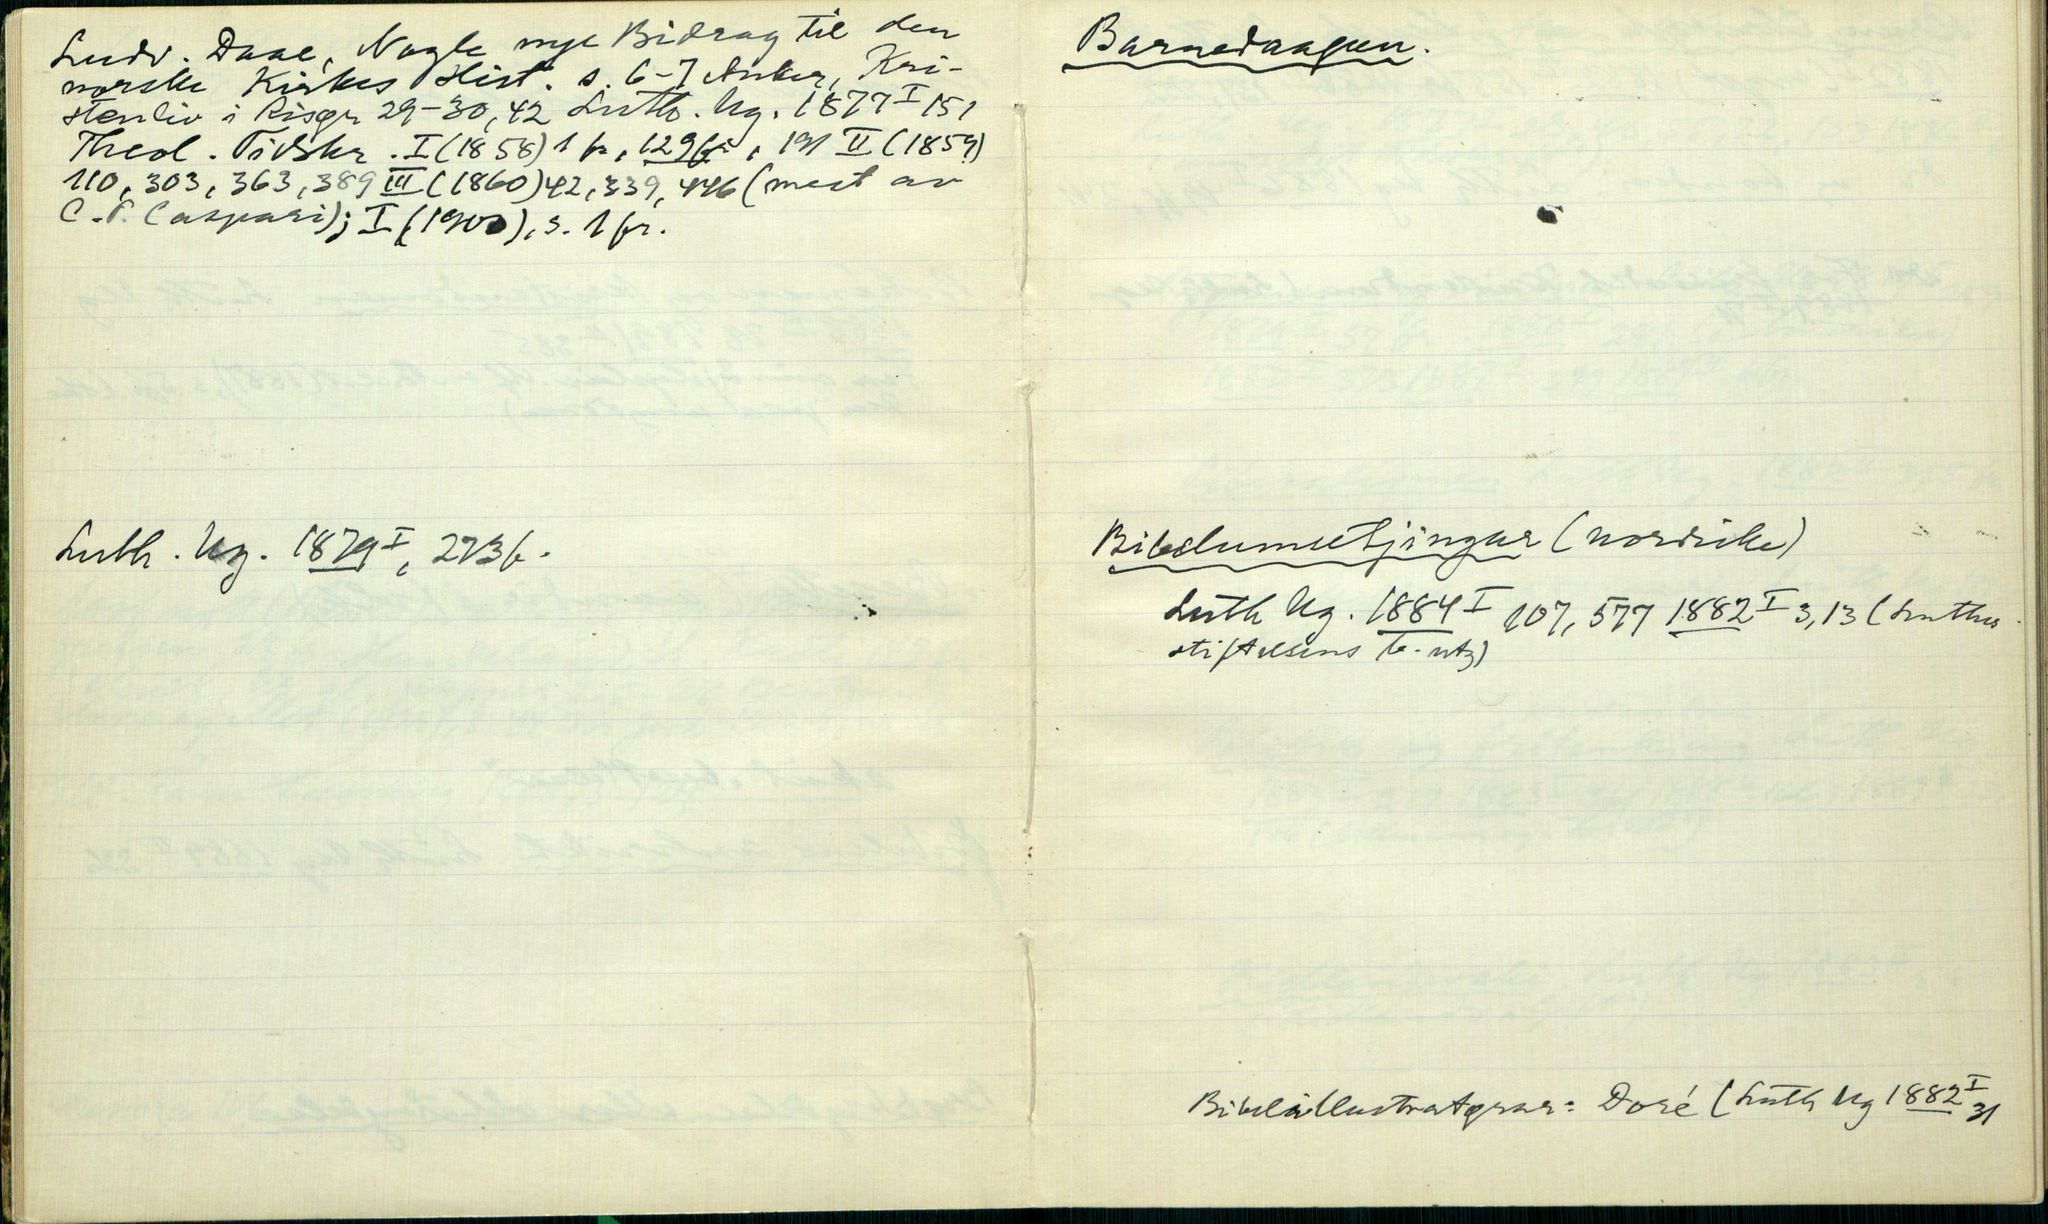 Ludv. Daae, Nogle nye Bidrag til den
norske Kirkes Hist. s. 6-7 Anker, Kri-
stenliv i Risør 29-30, 42 Luth. Ug. 1877 I 151
Theol. Tidskr. I (1858) 1 fr, 129 fr, 191 II (1859)
110, 303, 363, 389 III (1860) 42, 339, 446 (mest av
C. P. Caspari); I (1900), s. 1 fr.
Luth. Ug. 1879 I, 273 f.
Barnedaapen.
Bibelumsetjingar (nordiske)
Luth Ug. 1884 I 107, 577 1882 I 3, 13 (Luther
stiftelsens b. utg)
Bibelillustratørar: Doré (Luth Ug 1882 I 31